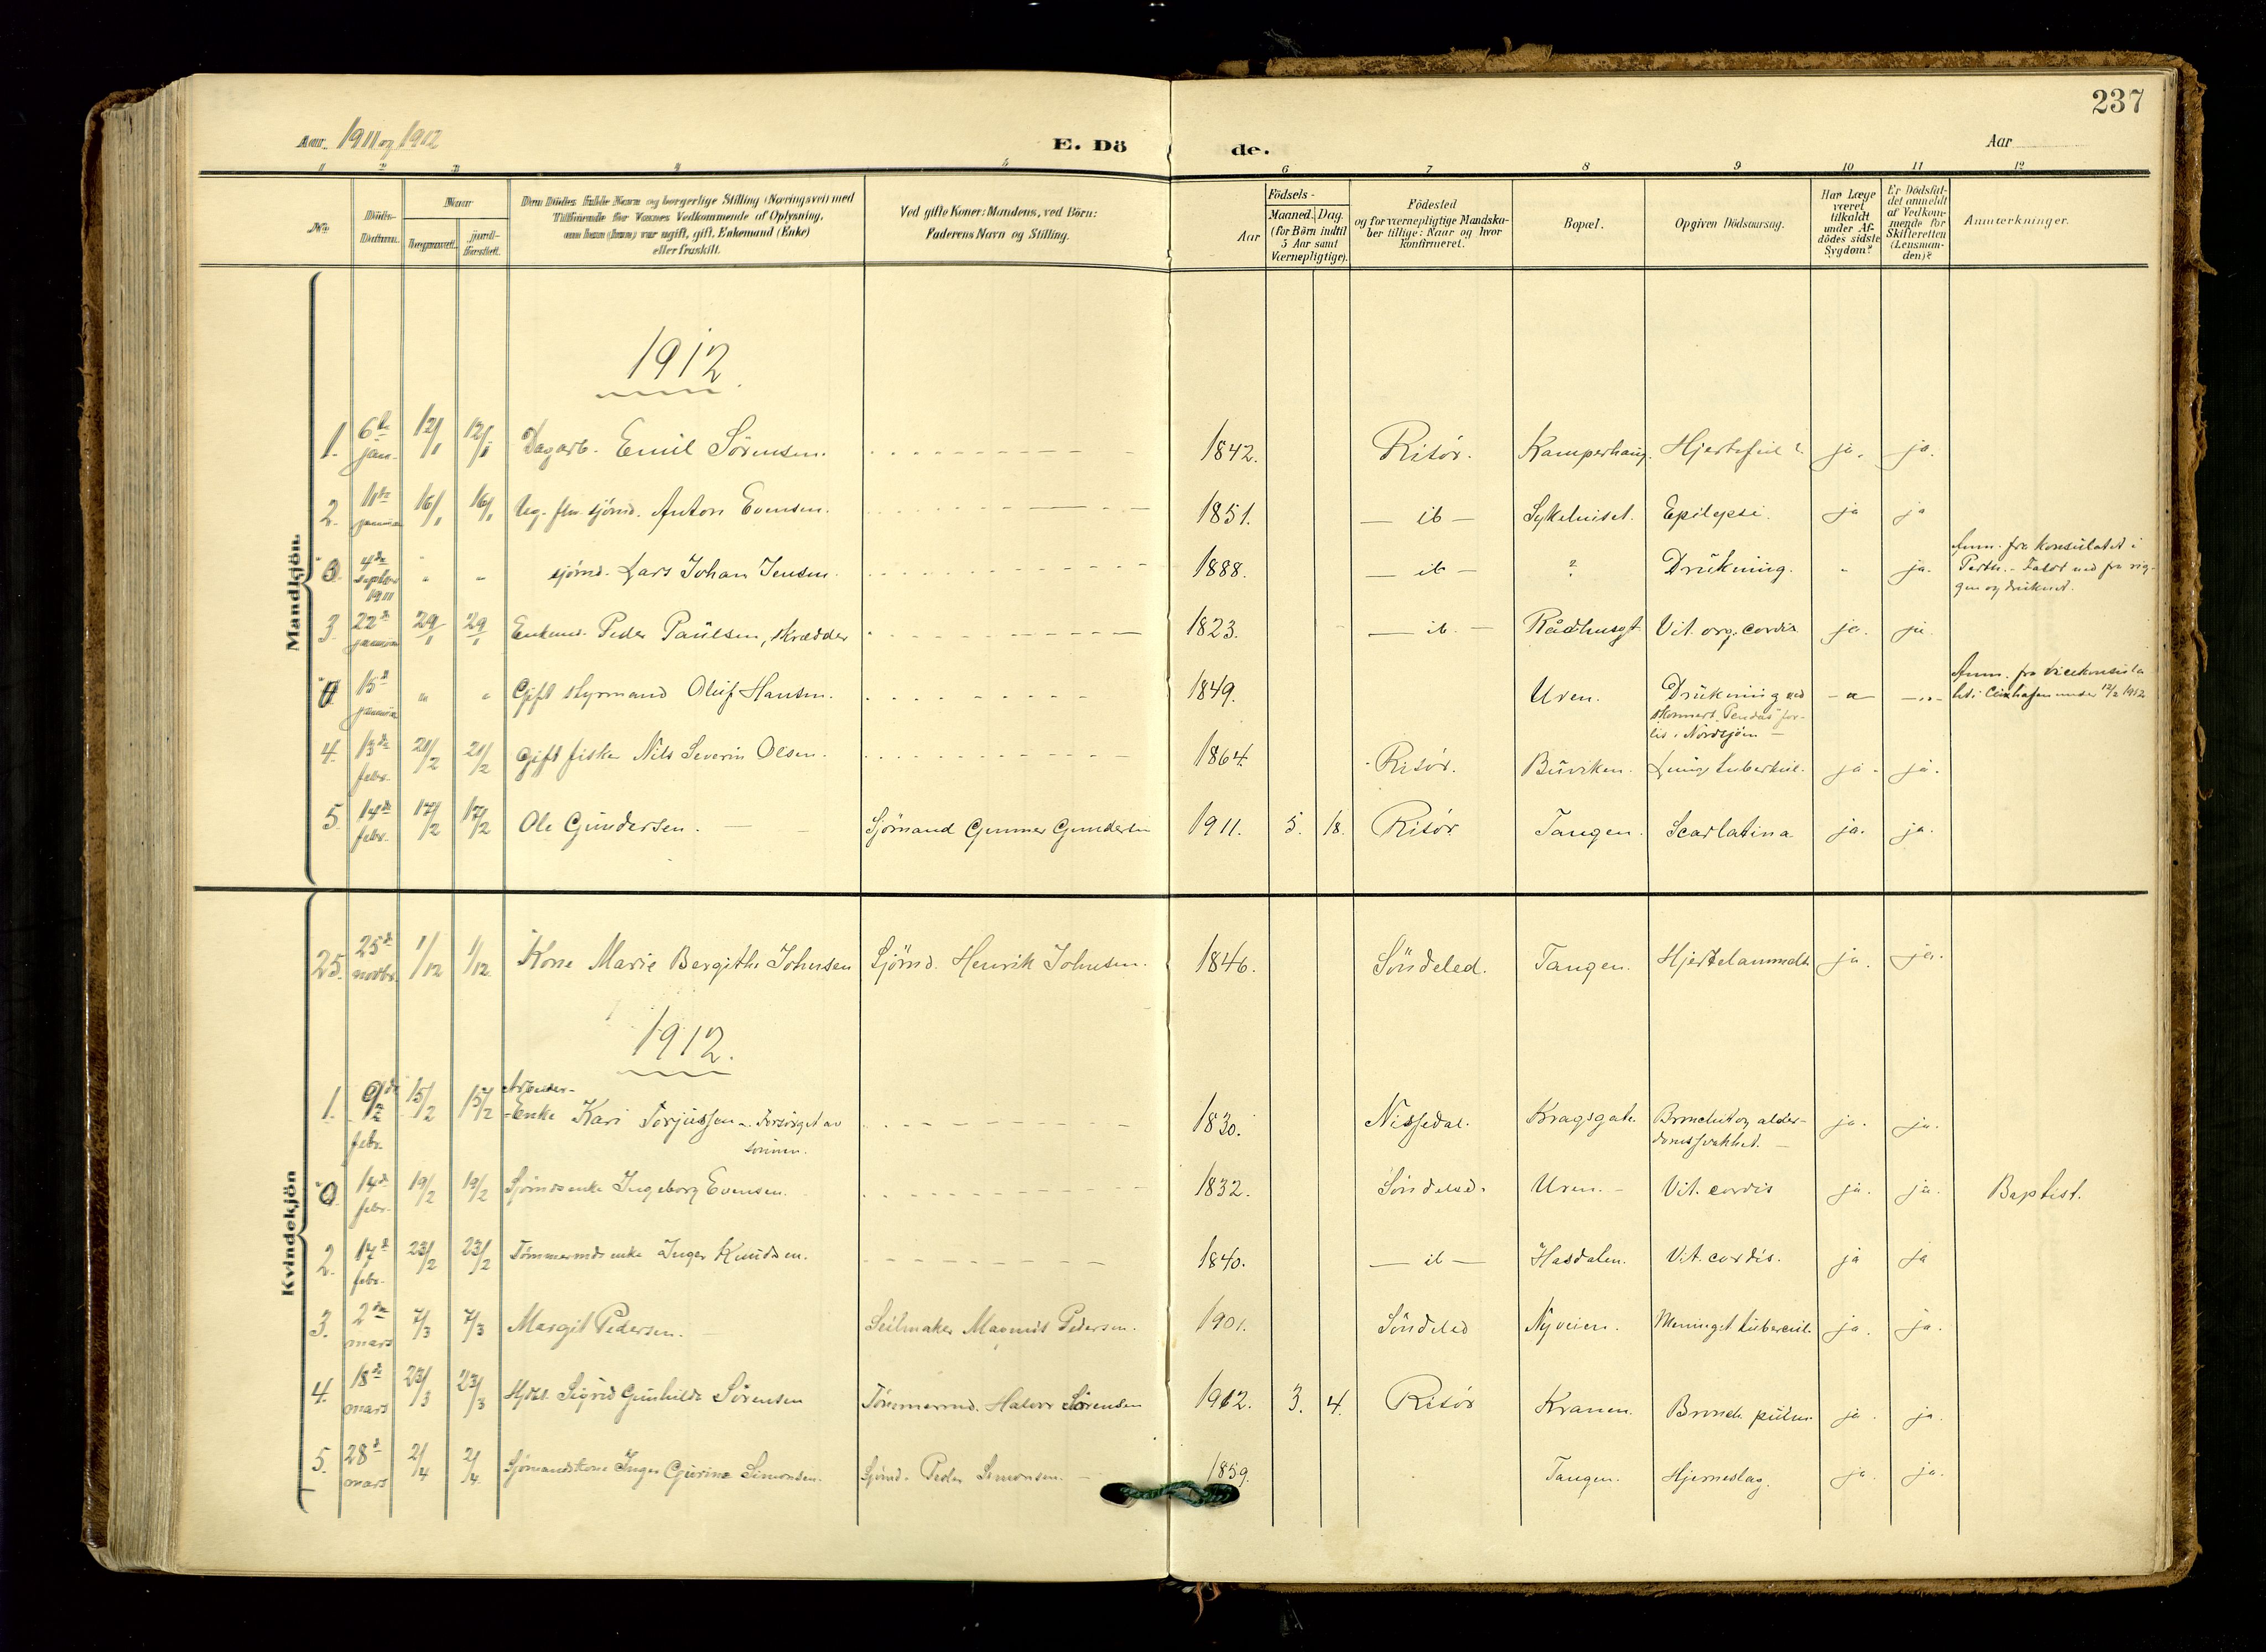 237
Aar 1911 og 1912
E. Dö
de.
Aar
1 2 3 4 5 6 7 8 9 10 11 12
No.
Döds-Datum.
Naar
Begravet.
Jord-fæstet.
Den Dödes fulde Navn og borgerlige Stilling (Næringsvei) med
Tilföiende for Voxnes Vedkommende af Oplysning,
om han (hun) var ugift, gift, Enkemand (Enke)
eller fraskilt.
Ved gifte Koner: Mandens, ved Börn:
Faderens Navn og Stilling.
Aar
Födsels-
Maaned. Dag.
(for Börn indtil
5 Aar samt
Værnepligtige).
Födested
og for værnepligtige Mandska-
ber tillige: Naar og hvor
konfirmeret.
Bopæl.
Opgiven Dödsaarsag.
Har Læge
været
tilkaldt
under Af-
dödes sidste
Sygdom?
Er Dödsfal-
det anmeldt
af Vedkom-
mende for
Skifteretten
(Lensman-
den)?
Anmærkninger.
Mandkjön
1912
1. 6te jan. 12/1 12/1 Dagarb. Emil Sörensen. 1842. Risör. Kamperhaug. Hjertefeil ? ja. ja.
2. 11te januar 16/1 16/1 Ug. fhv. sjömd. Anton Evensen. 1851. — ib — Sykehuset. Epilepsi. ja ja
0. 4de septbr 1911 " " sjömd. Lars Johan Jensen. 1888. — ib — ? Drukning. - ja. Anm. fra Konsulatet i
Perth. - Faldt ned fra rig-
gen og druknet.
3. 22de januar 29/1 29/1 Enkemd. Peder Paulsen, skrædder 1823. — ib. — Rådhusgt. Vit. org. cordis ja. ja.
0 15de januar " " Gift styrmand Oluf Hansen. 1849. Uren. Drukning ved
skonnert "Pendus" for-
lis i Nordsjöen — - " - - " - Anm. fra Vicekonsula
tet i Cuxhafen under 12/2 1912
4. 13de febr. 21/2 21/2 Gift fisker Nils Severin Olsen. 1864. Risör. Buviken. Lungetuberkul. ja. ja.
5. 14de febr. 17/2 17/2 Ole Gundersen. — Sjömand Gunner Gundersen 1911. 5. 18. Risör Tangen. Scarlatina ja. ja.
Kvindekjön
25. 25de novbr. 1/12 1/12 Kone Marie Bergithe Johnsen Sjömd. Henrik Johnsen. 1846. Söndeled. Tangen. Hjertelammelse ja. ja.
1912.
1. 9de febr. 15/2 15/2 Arbeider-
-Enke Kari Torjussen - forsörget av
sönnen. 1830. Nissedal. Kragsgate. Bronchit og alder-
domssvakhet. — ja. ja.
0. 14de febr. 19/2 19/2 Sjömdsenke Ingeborg Evensen. 1832. Söndeled. Uren. - Vit. cordis ja. ja. Baptist.
2. 17de febr. 23/2 23/2 Tömmermds enke Inger Knudsen. 1840. — ib — Hasdalen. Vit. cordis. ja ja
3. 2den mars 7/3 7/3 Margit Pedersen. Seilmaker Magnus Pedersen. 1901. Söndeled Nyveien. Meningit tubercul. ja. ja.
4. 18de mars 23/3 23/3 Hjdbt. Sigrid Gunhilde Sörensen Tömmermd. Halvor Sörensen 1912. 3. 4. Risör Kranen. Bronch. pulm. ja. ja.
5. 28de mars 2/4 2/4 Sjömandskone Inger Gjurine Simonsen. Sjömd. Peder Simonsen. — 1859. Tangen. Hjerneslag. ja. ja.